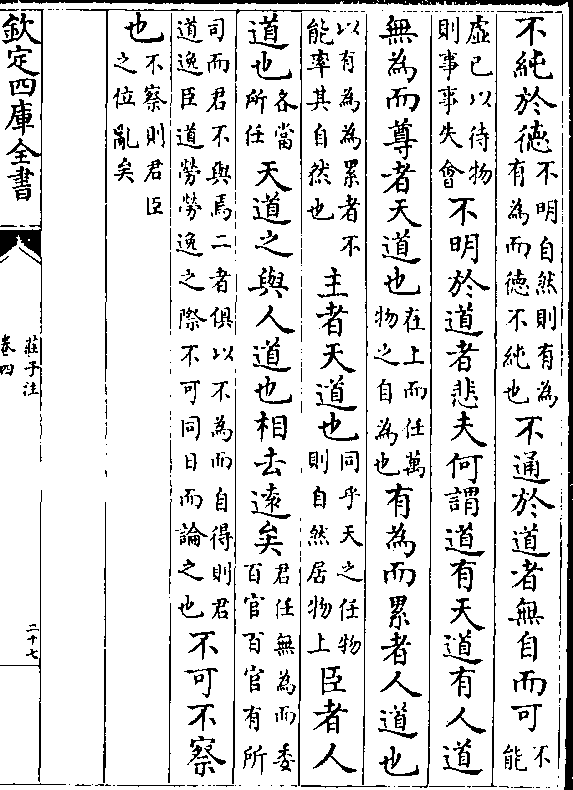 不純於徳不明自然則有為有為而德不純也不通於道者無自而可不能
虛已以待物則事事失會不明於道者悲夫何謂道有天道有人道
無為而尊者天道也在上而任萬物之自為也有為而累者人道也
以有為為累者不能率其自然也主者天道也同乎天之任物則自然居物上臣者人
道也各當所任天道之與人道也相去遠矣君任無為而委百官百官有所
司而君不與焉二者俱以不為而自得則君道逸臣道勞勞逸之際不可同日而論之也不可不察
也不察則君臣之位亂矣
欽定四庫全書
莊子注
卷四
二十七